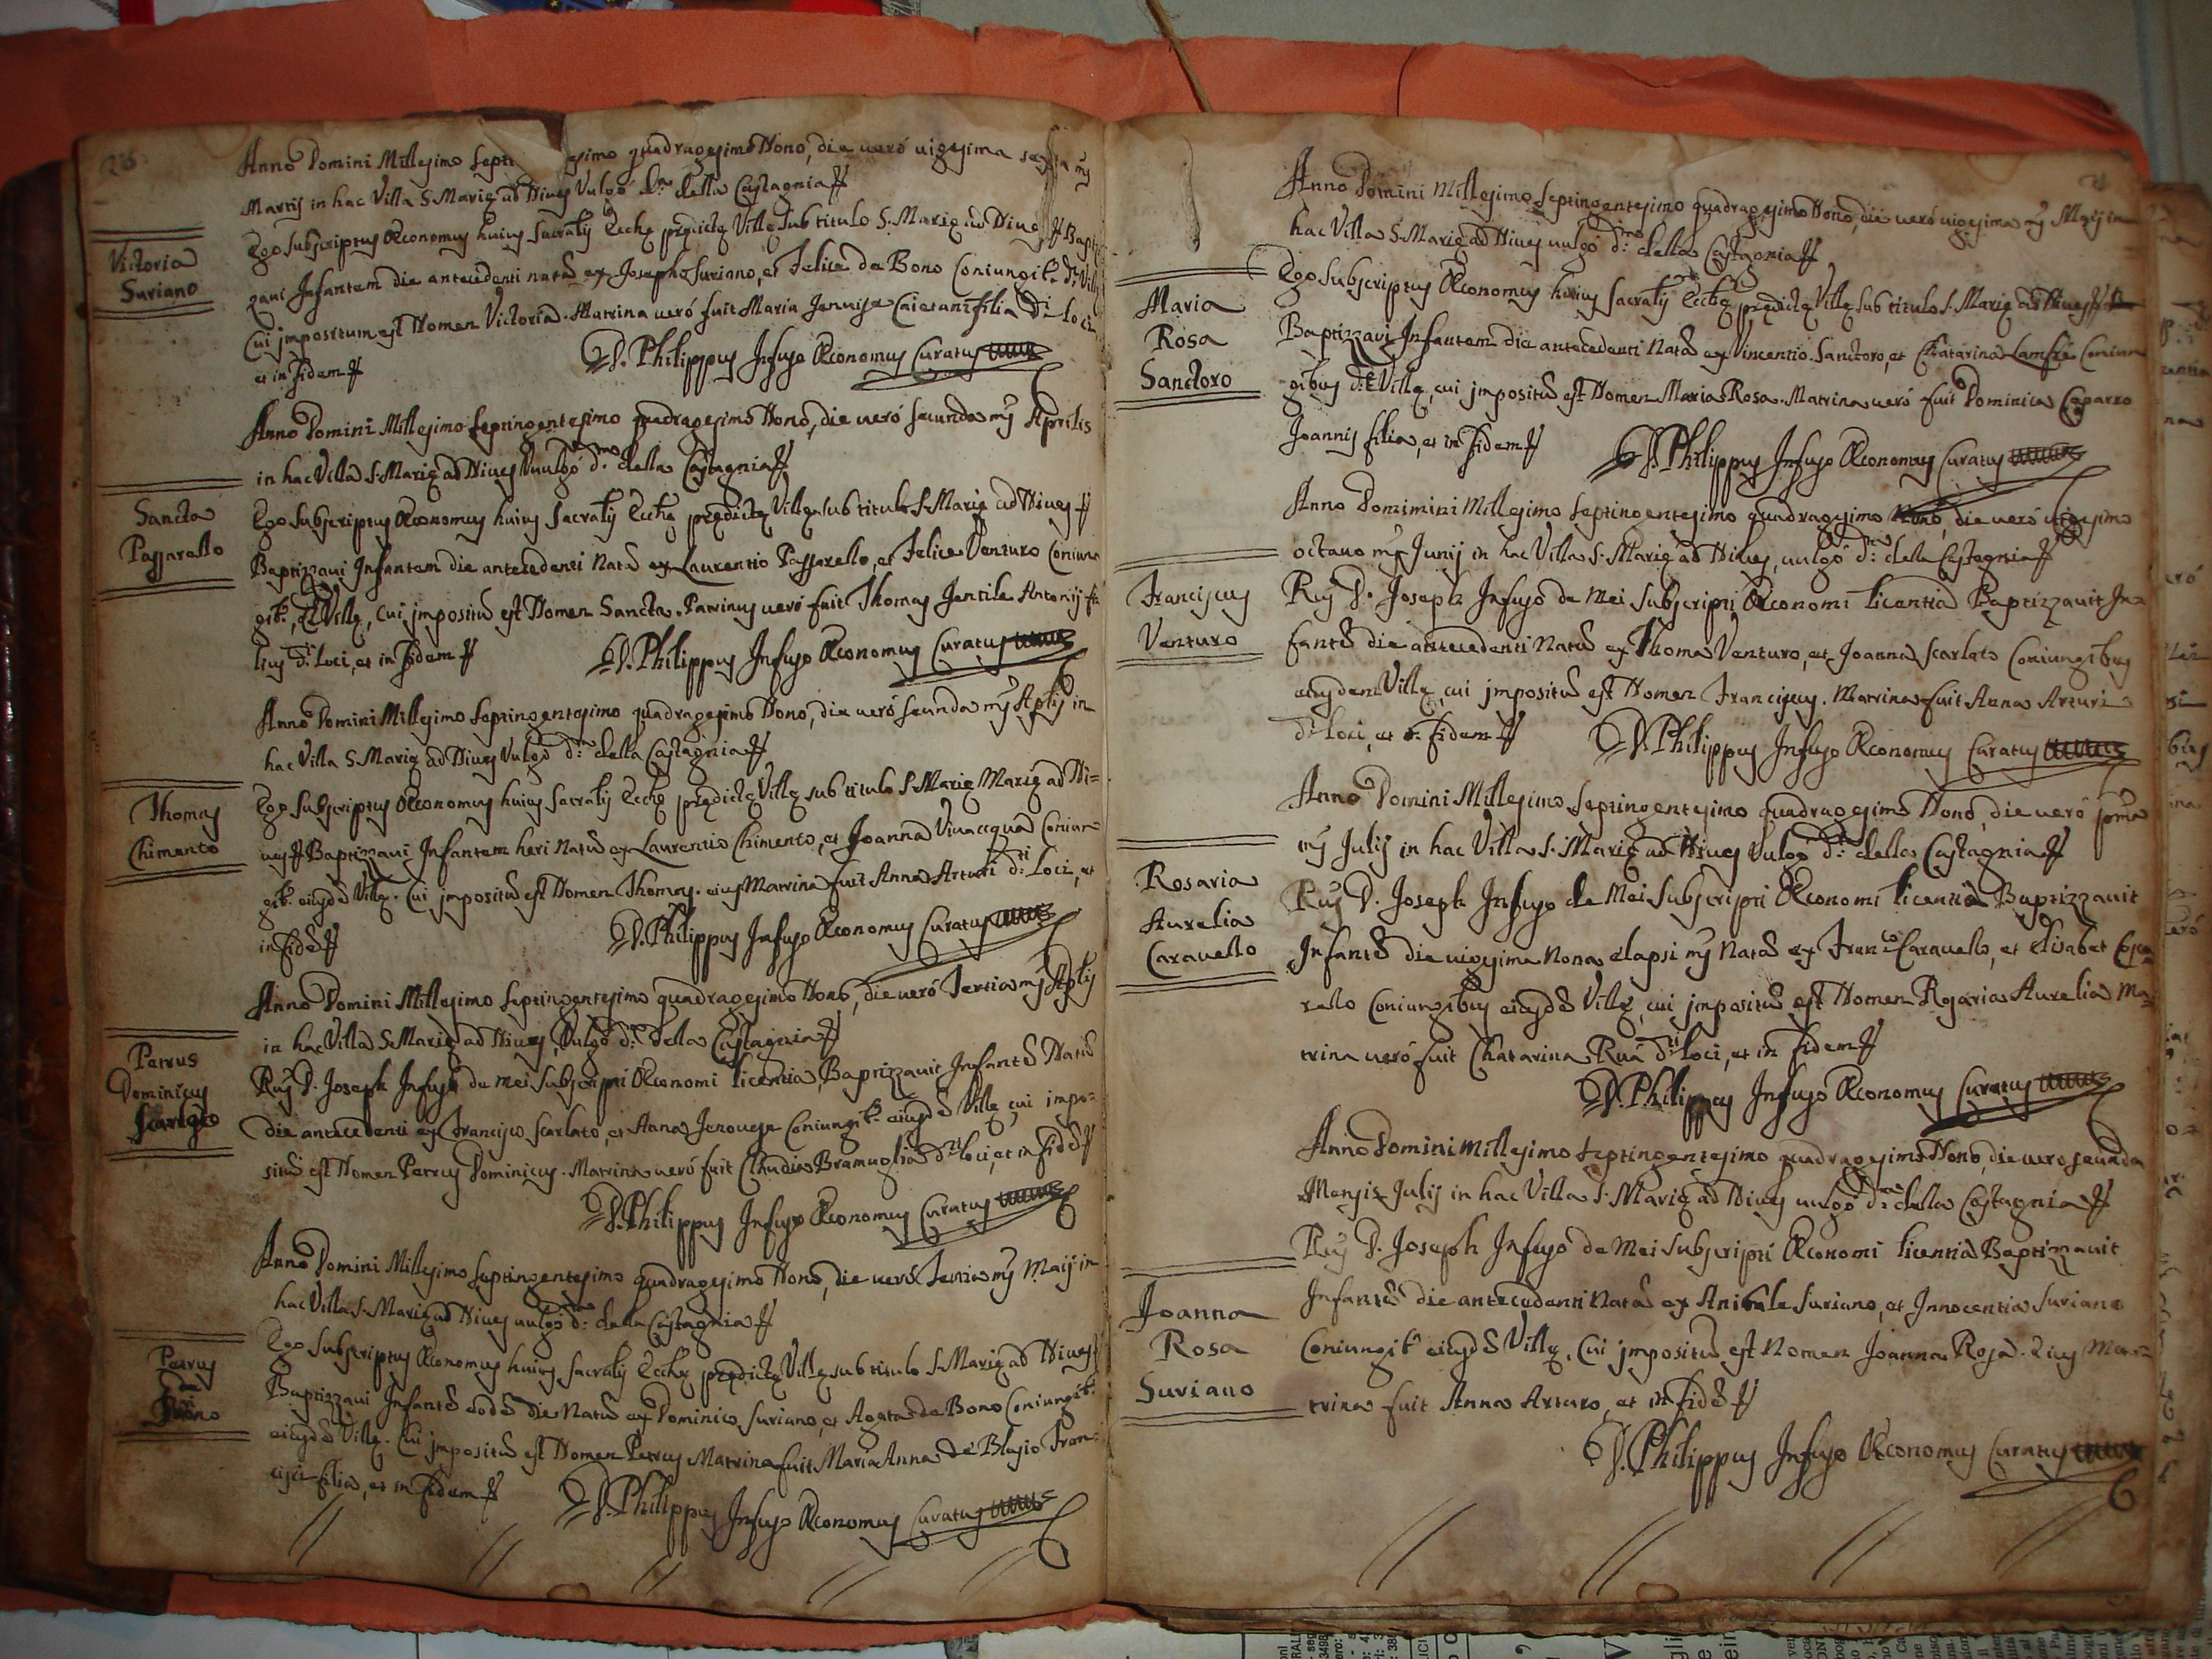 Anno Domini Millesimo Septi gesimo quadragesimo Nono, die verò vigesima
Martij in hac Villa S. Marię ad Nives Vulgo della Castagnia
Victoria
Suriano
Ego Subscriptus Œconomus huius Sacralis Ecclę prędictę Villę sub titulo S. Marię ad Nives Bapti
zavi Infantem die antecedenti natã ex Josepho Suriano, et Felice de Bono Coniungib. 
Cui impositum est Nomen Victoria. Matrina verò fuit Maria Jennise Caietani filia di Loci
et in Fidem
D. Philippus Infuso Œconomus Curatus
Anno Domini Millesimo Septingentesimo quadragesimo Nono, die verò secunda ms Aprilis
in hac Villa S. Marię ad Nives Vulgò d. della Castagnia
Sancta
Passarello
Ego Subscriptus Œconomus huius Sacralis Ecclę prędictę Villę sub titulo S. Marię ad Nives
Baptizzavi Infantem die antecedenti Natã ex Laurentio Passarello, et Felice Venturo Coniun
gib., Villę, cui impositũ est Nomen Sancta. Patrinus verò fuit Thomas Gentile Antonij fi
lius di Loci, et in Fidem
D. Philippus Infuso Œconomus Curatus
Anno Domini Millesimo Septingentesimo quadragesimo Nono, die verò secunda ms Aplis in
hac Villa S. Marię ad Nives Vulgò d. della Castagnia
Thomas
Chimento
Ego Subscriptus Œconomus huius Sacralis Ecclę prędictę Villę sub titulo S. Marię Marię ad Ni=
ves Baptizzavi Infantem heri Natũ ex Laurentio Chimento, et Joanna Vivacqua Coniun=
gib. eiusdẽ Villę. Cui impositũ est Nomen Thomas. eius Matrina fuit Anna Arturi di Loci, et
in Fidẽ
D. Philippus Infuso Œconomus Curatus
Anno Domini Millesimo Septingentesimo quadragesimo Nono, die verò Tertia ms Aplis
in hac Villa S. Marię ad Nives, Vulgò d. della Castagnia
Petrus
Dominicus
Scarlato
Rus D. Joseph Infuso de mei Subscripti Œconomi licentia, Baptizzavit Infantẽ Natũ
die antecedenti ex Francisco Scarlato, et Anna Jenouese Coniungib. eiusdẽ Villę cui impo=
situ est Nomen Petrus Dominicus. Matrina verò fuit Claudia Bramuglia di loci, et in Fidẽ
D. Philippus Infuso Œconomus Curatus
Anno Domini Millesimo Septingentesimo quadragesimo Nono, die verò Tertia ms Maij in
hac Villa S. Marię ad Nives vulgò d. della Castagnia
Petrus
Ego Subscriptus Œconomus huius Sacralis Ecclę prędictę Villę sub titulo S. Marię ad Nives
Baptizzavi Infantẽ eodẽ die Natũ ex Dominico Suriano, et Agata de Bono Coniungib.
eiusdẽ Villę. Cui impositũ est Nomen Petrus Matrina fuit Maria Anna de Blasio Fran=
cisci filia, et in Fidem
D. Philippus Infuso Œconomus Curatus
Anno Domini Millesimo Septingentesimo quadragesimo Nono, die verò vigesima ms Maij in
hac Villa S. Marię ad Nives vulgò d. della Castagnia
Maria
Rosa
Sanctoro
Ego Subscriptus Œconomus huius Sacralis Ecclę prędictę Villę sub titulo S. Marię ad Nives
Baptizzavi Infantem die antecedenti Natã ex Vincentio Sanctoro, et Chatarina Coniun
gibus Villę, cui impositũ est Nomen Maria Rosa. Matrina verò fuit Dominica Caparro
Joannis filia, et in Fidem
D. Philippus Infuso Œconomus Curatus
Anno Domimini Millesimo Septingentesimo quadragesimo Nono, die verò vigesimo
octavo ms Junij in hac Villa S. Marię ad Nives, vulgò d. della Castagnia
Franciscus
Venturo
Rus D. Joseph Infuso de Mei Subscripti Œconomi licentia Baptizzavit In=
fantẽ die antecedenti Natũ ex Thoma Venturo, et Joanna Scarlato Coniungibus
eiusdem Villę, cui impositũ est Nomen Franciscus. Matrina fuit Anna Arturi
di Loci, et Fidem
D. Philippus Infuso Œconomus Curatus
Anno Domini Millesimo Septingentesimo quadragesimo Nono, die verò prima
ms Julij in hac Villa S. Marię ad Nives Vulgò d. della Castagnia
Rosaria
Aurelia
Caravello
Rus D. Joseph Infuso de Mei Subscripti Œconomi licentia Baptizzavit
Infantẽ die vigesima Nona elapsi ms Natã ex Franco Caravello, et Elisabet
rello Coniungibus eiusdẽ Villę, cui impositũ est Nomen Rosaria Aurelia Ma
trina verò fuit Chatarina Ruà di Loci, et in Fidem
D. Philippus Infuso Œconomus Curatus
Anno Domini Millesimo Septingentesimo quadragesimo Nono, die vero secunda
Mensis Julij in hac Villa S. Marię ad Nives vulgò d. della Castagnia
Joanna
Rosa
Suriano
Rus D. Joseph Infuso de Mei Subscripti Œconomi licentia Baptizzavit
Infantẽ die antecedenti Natã ex Anibale Suriano, et Innocentia Suriano
Coniungib. eiusdẽ Villę, Cui impositũ est Nomen Joanna Rosa. Eius Ma=
trina fuit Anna Arturo, et in Fidẽ
D. Philippus Infuso Œconomus Curatus